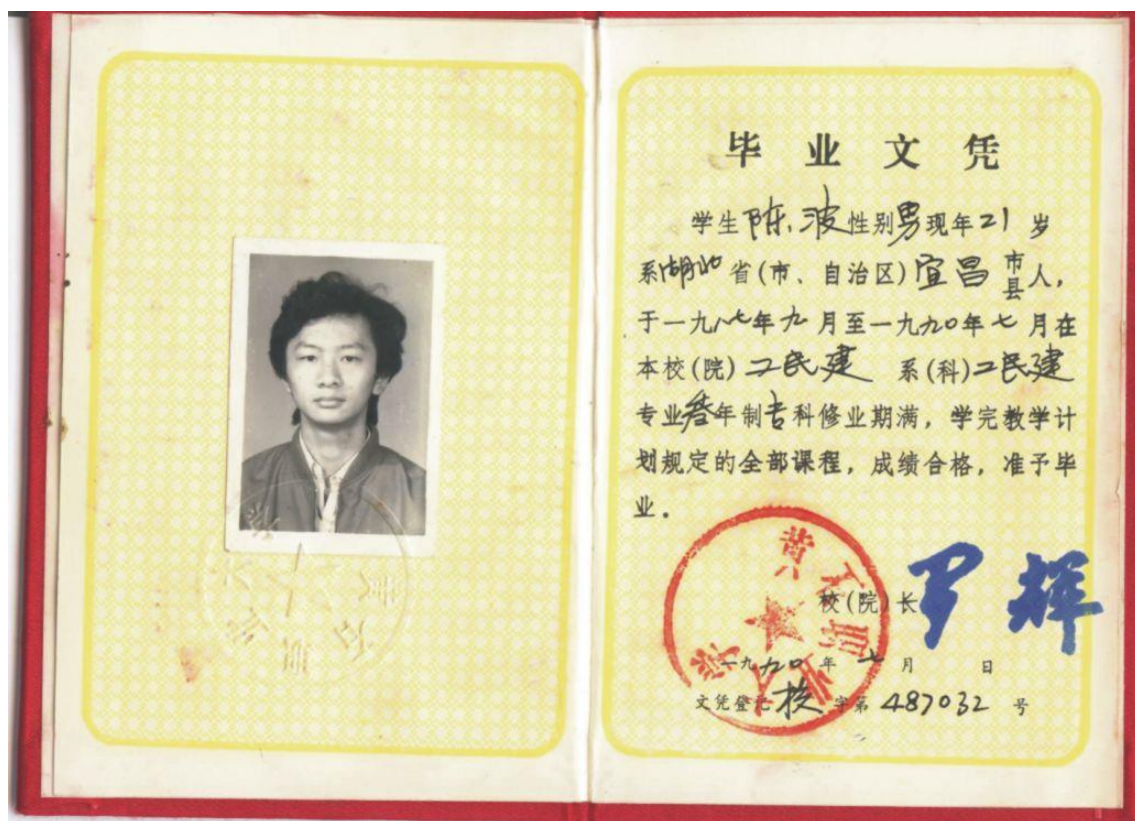 毕业文凭
学生陈波性别男现年21岁
系湖北省(市、自治区)宜昌市县人，
于一九八七年九月至一九九〇年七月在
本校(院)工民建 系(科)工民建
专业叁年制专科修业期满，学完教学计
划规定的全部课程，成绩合格，准予毕
业.
校(院)长 罗辉
一九九〇年七月 日
文凭登记校字第487032号
黄石职业大学